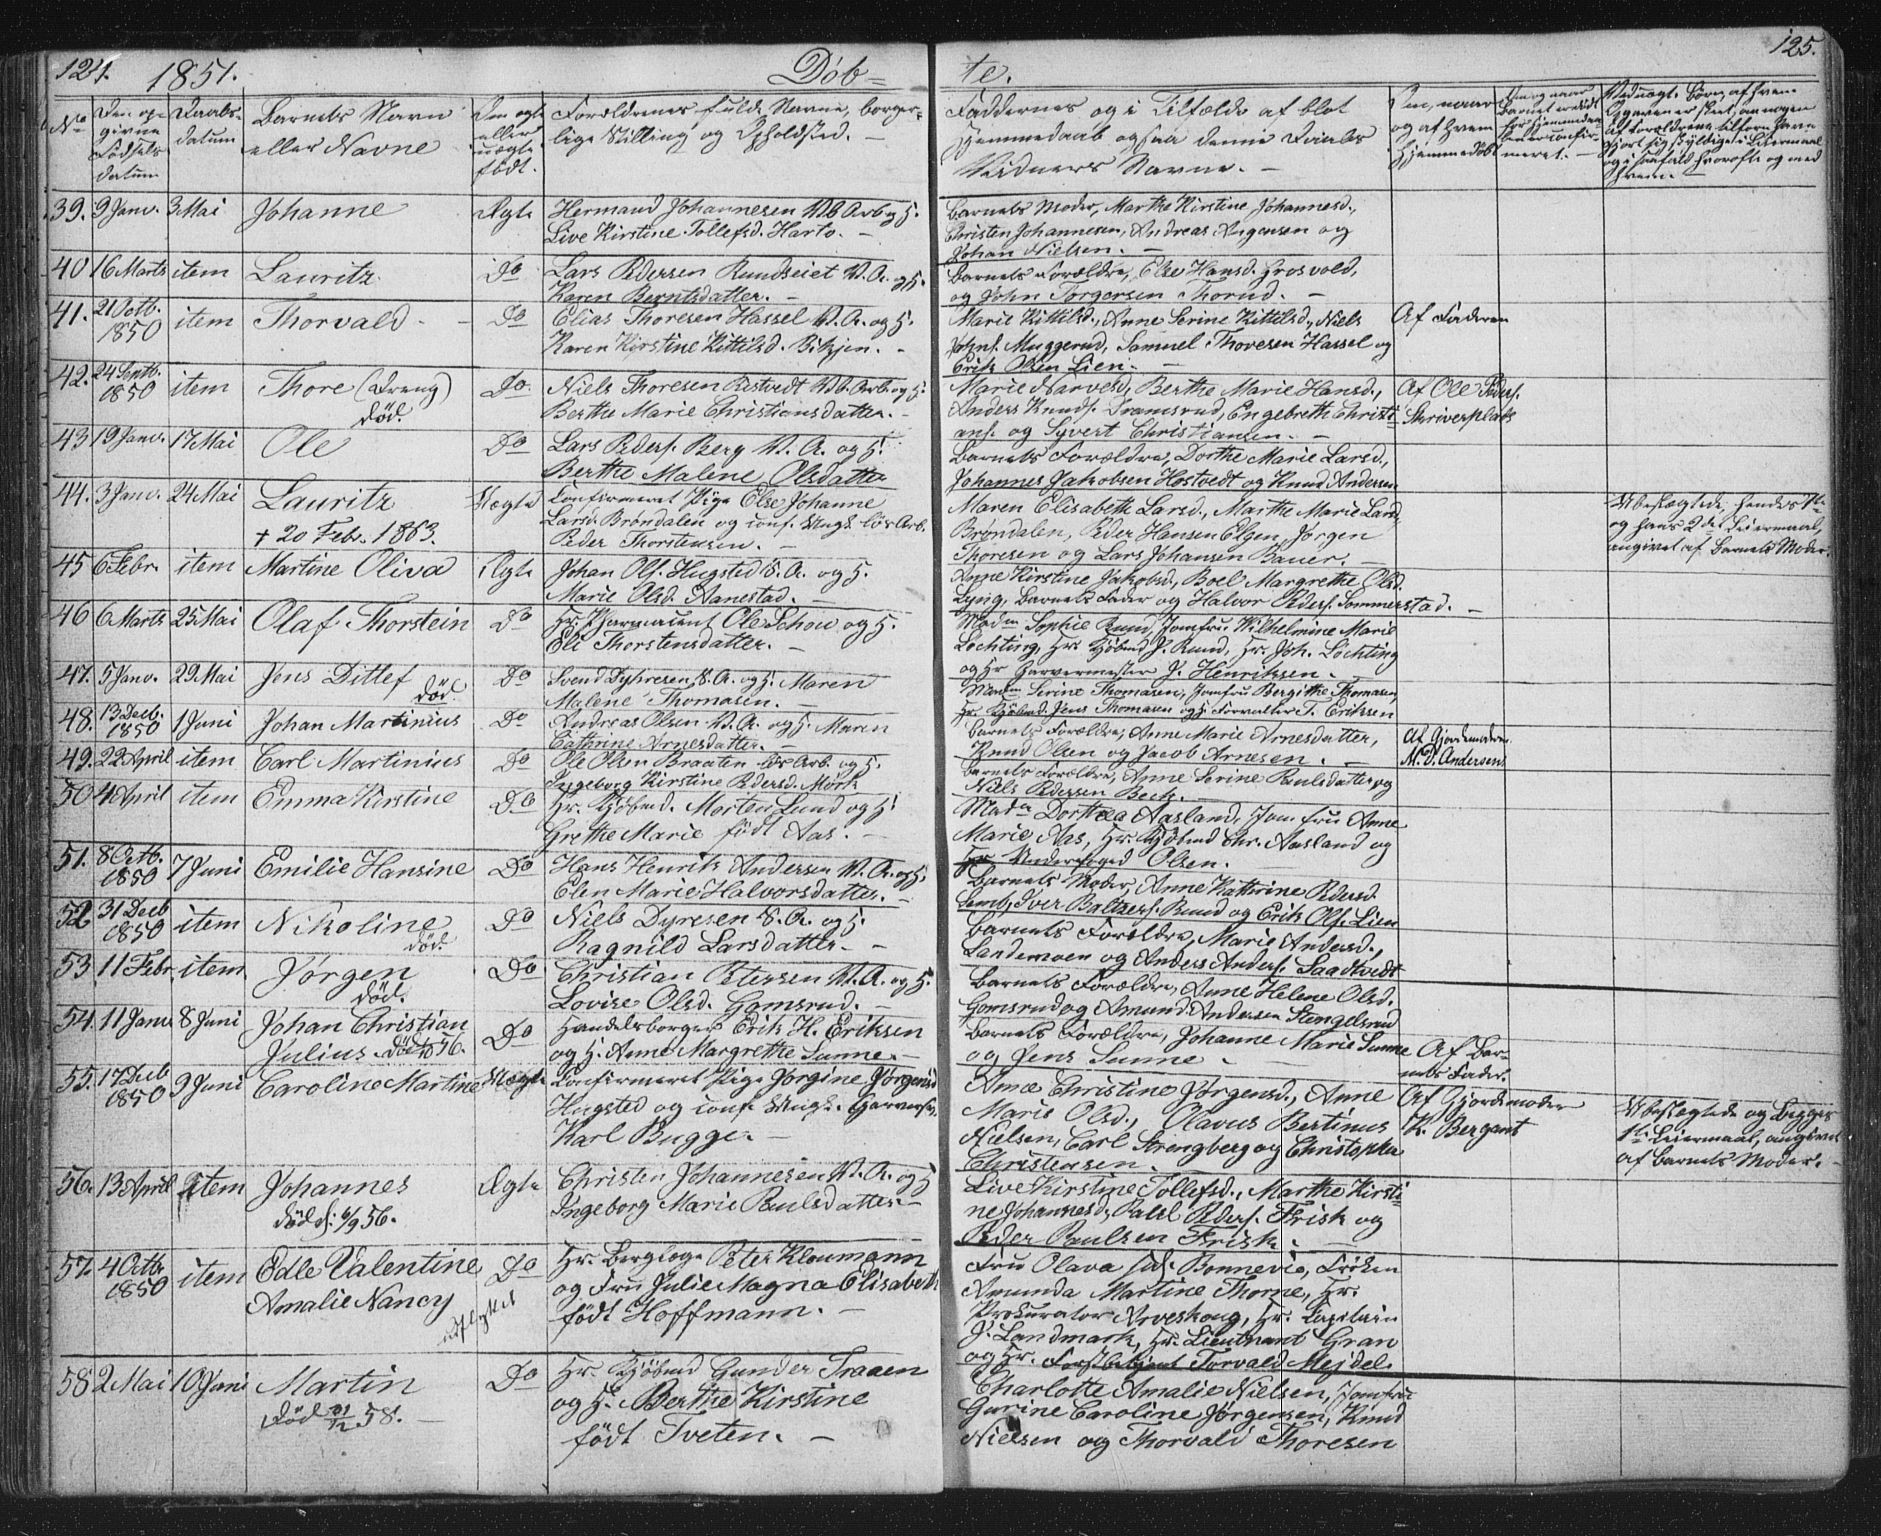 124. 1851. Døb=
No
Den op-
givne
Fødsels
datum
Daabs-
datum
Barnets Navn
eller Navne
Om ægte
eller
uægte
født.
Forældrenes fulde Navne, borger-
lige Stilling og Opholdsted. —
39. 9 Janv. 3 Mai Johanne Ægte Hermand Johannesen Vb Arb og H.
Live Kirstine Tollefsd. Harto. —
40 16 Marts item Lauritz Do Lars Pedersen Rundseiet V. A. og H.
Karen Berntsdatter. —
41. 21 Octb.
1850 item Thorvald Do Elias Thoresen Hassel V. A. og H.
Karen Kirstine Kittilsd. Vikjen. -
42. 24 Septb.
1850 item Thore (Dreng) Do Niels Thoresen Vb. Arb. og H.
død. Berthe Marie Christiansdatter. -
43 19 Janv. 17 Mai Ole Do Lars Peders. Berg V. A. og H.
Berthe Malene Olsdatter
44. 3 Janv. 24 Mai Lauritz Uægte Confirmeret Pige Else Johanne
+ 20 Febr. 1863. Larsd. Brøndalen og conf. Ungk. løs Arb.
Peder Thorstensen. —
45 6 Febr. item Martine Oliva Ægte Johan Ols. Hugsted S. A. og H.
Marie Olsd. Aanestad. —
46 6 Marts 25 Mai Olaf Thorstein Do Hr. Pharmaceut Ole Schow og H.
Eli Thorstensdatter. —
47. 5 Janv. 29 Mai Jens Ditlef Do Svend Dyhresen, S. A. og H. Maren
død. Malene Thomasen. —
48. 13 Decb.
1850 1 Juni Johan Martinius Do Andreas Olsen V. A. og H. Maren
Cathrine Arnesdatter. —
49. 22 April item Carl Martinius Do Ole Olsen Braaten Vb Arb. og H.
Ingeborg Kirstine Pedersd. Mørk
50 4 April item Emma Kirstine Do Hr. Kjøbmd. Morten Lund og H.
Grethe Marie født Aas. —
51. 8 Octb.
1850 7 Juni Emilie Hansine Do Hans Henrik Andersen V. A. og H.
Elen Marie Halvorsdatter. —
52 31 Decb
1850 item Nikoline Do Niels Dyresen S. A. og H.
død. Ragnild Larsdatter. —
53 11 Febr. item Jørgen Do Christian Petersen V. A. og H.
død. Lovise Olsd. Gomsrud. —
54. 11 Janv 8 Juni Johan Christian Do Handelsborger Erik H. Eriksen
Julius. død 56. og H. Anne Margrethe Sunne. —
55. 17 Decb
1850 9 Juni Caroline Martine Uægte Confirmeret Pige Jorgine Jørgensd
Hugsted og conf. Ungk. Garversv.
Karl Bugge. —
56. 13 April item Johannes Ægte Christen Johannesen V. A. og H
død d: 6/9 56. Ingeborg Marie Paulsdatter —
57. 4 Octbr
1850 item Edle Valentine Do Hr. Berglæge Peter Kleumann
Amalie Nancy udflyttet og Fru Julie Magna Elisabeth
født Hoffmann. —
58 2 Mai 10 Juni Martin Do Hr. Kjøbmd Gunder Traaen
død 31/12 58. og H. Berthe Kirstine
født Tveten. —
te. 125.
Faddernes og i Tilfælde af blot
Hjemmedaab ogsaa denne Daabs
Vidners Navne. —
Om, naar
og af hvem
hjemmedøbt
Om og naar
Barnet
meret. —
Ved uægte Børn, af hvem
Opgaven er skeet, om nogen
af Forældrene tilforn have
gjort sig skyldige i Leiermaal
og i saafald hvorofte og med
hvem. —
Barnets Moder, Marthe Kirstine Johannesd.,
Christen Johannesen, Andreas Angensen og
Johan Nielsen. —
Barnets Forældre, Else Hansd. Grosvold,
og John Torgersen Thorud. —
Marie Kittilsd., Anne Serine Kittilsd., Niels Af Faderen
Johns. Muggerud, Samuel Thoresen Hassel og
Erik Olsen Lien. —
Marie Narvesd., Berthe Marie Hansd., Af Ole Peders.
Anders Knuds. Tramsrud, Engebreth Christi- Skriversplads
ans. og Syvert Christiansen. —
Barnets Forældre, Dorthe Marie Larsd.,
Johannes Jakobsen Hostvedt og Knud Andersen
Maren Elisabeth Larsd., Marthe Marie Larsd. Ubeslægtede, hendes 1ste
Brøndalen, Peder Hansen Elgen, Jørgen og hans 2det Leiermaal,
Thoresen og Lars Johansen Bauer. — angivet af Barnets Moder.
Anne Kirstine Jakobsd., Boel Margrethe Olsd.
Lyng, Barnets Fader og Halvor Peders. Sommerstad. —
Madm Sophie Ruud, Jomfru Wilhelmine Marie
Løchting, Hr. Kjøbmd J. Ruud, Hr. Joh. Løchting
og Hr Garvermester J. Henriksen. —
Madm Serine Thomasen, Jomfru Bergithe Thomasen,
Hr. Kjøbmd. Jens Thomasen og H Forvalter T. Eriksen
Barnets Forældre, Anne Marie Arnesdatter, Af Gjordemoderen
Knud Olsen og Jacob Arnesen. — M. D. Andersen
Barnets Forældre, Anne Serine Paulsdatter og
Niels Pedersen Beck. —
Madm Dorthea Aasland, Jomfru Anne
Marie Aas, Hr. Kjøbmd Chr. Aasland og
Hr Underfoged Olsen.
Barnets Moder, Anne Kathrine Pedersd
Semb, Iver Baltzers. Ruud og Erik Ols. Lien
Barnets Forældre, Marie Andersd.,
Landemoen og Anders Anders. Saadtvedt
Barnets Forældre, Anne Helene Olsd.
Gomsrud og Amund Andersen Stengelsrud
Barnets Forældre, Johanne Marie Sunne Af Bar-
og Jens Sunne — nets Fader.
Anne Christine Jørgensd., Anne Af Gjordemoder
Marie Olsd., Olavus Bertinus K. Bergant
Nielsen, Carl Strengberg og Christopher
Christensen.
Ubeslægtede og Begges
1ste Leiermaal, angivet
af Barnets Moder. —
Live Kirstine Tollefsd., Marthe Kirsti-
ne Johannesd, Paul Peders. Frisk og
Peder Paulsen Frisk. —
Fru Olava Bonnevie, Frøken
Amunda Martine Thorne, Hr.
Prokurator Arveskoug, Hr. Capitain
J. Landmark, Hr. Lieutnant Gran
og Hr. Forstbetjent Torvald Mejdel.
Charlotte Amalie Nielsen, Jomfrue
Gurine Caroline Jørgensen, Knud
Nielsen og Thorvald Thoresen